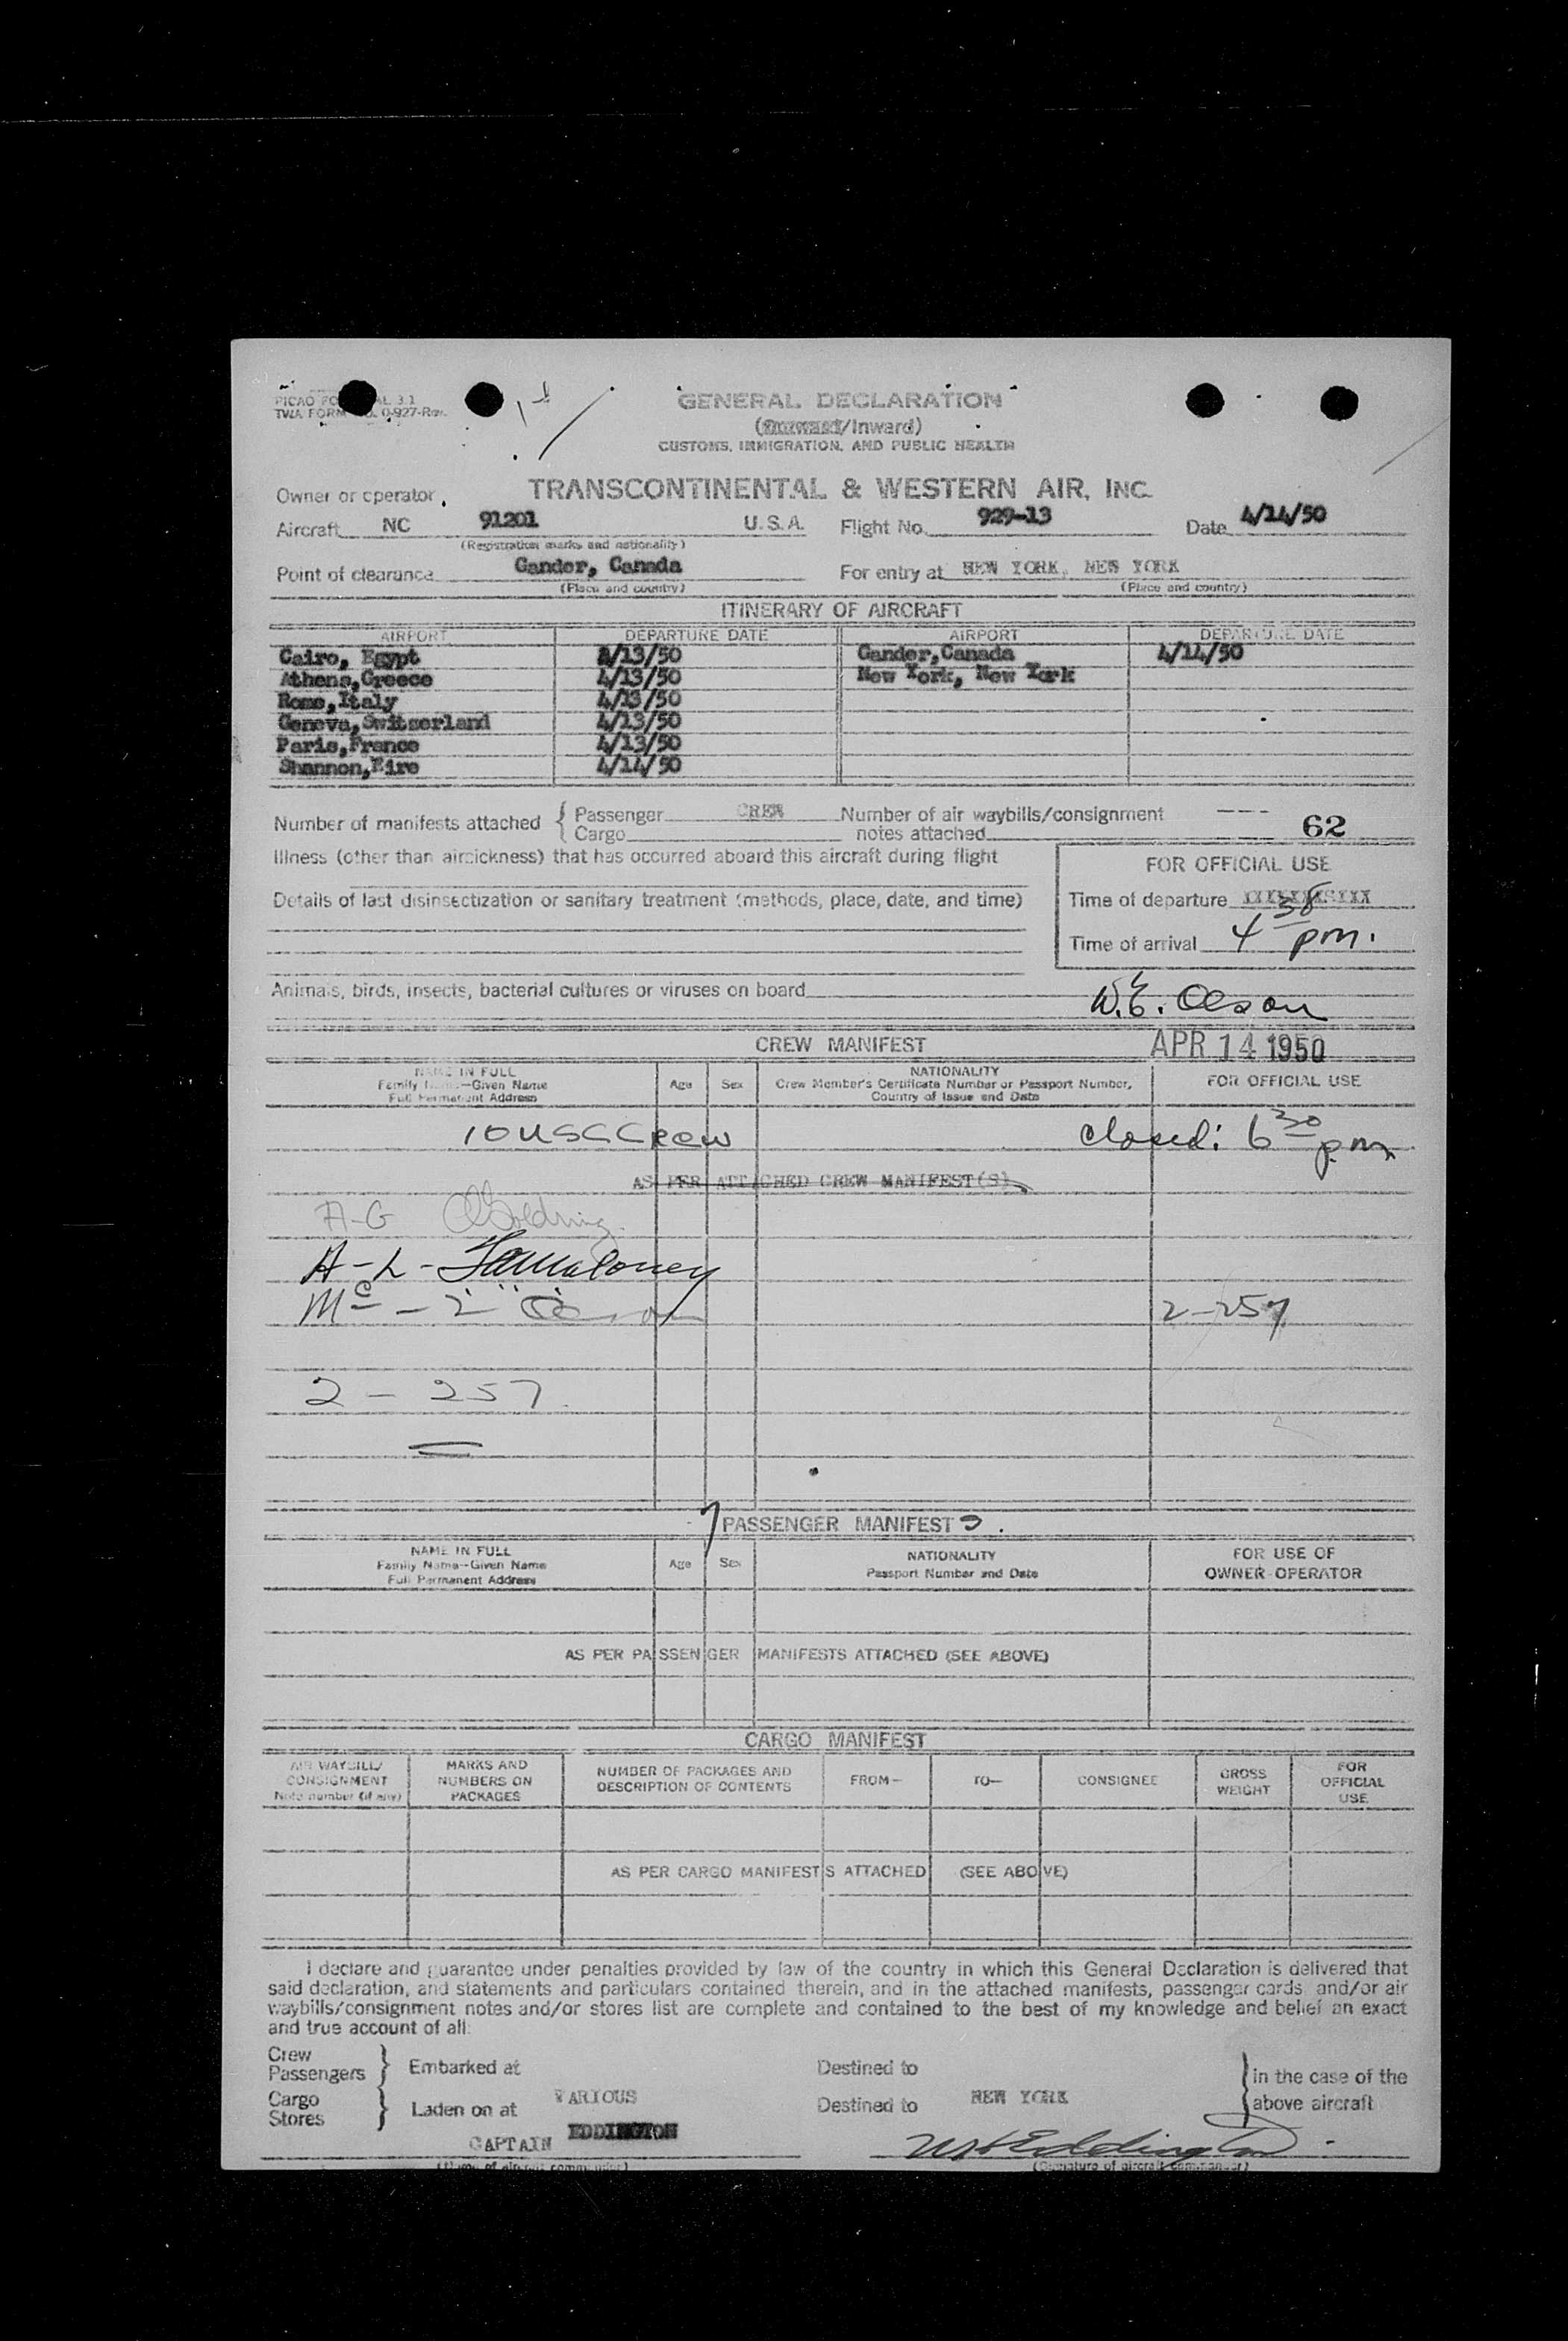 PICAO FO AL 3.1
TWA FORM NO. 0-927-Rev.
GENERAL DECLARATION
(Outward/Inward)
CUSTOMS, IMMIGRATION, AND PUBLIC HEALTH
Owner or operator TRANSCONTINENTAL & WESTERN AIR, INC.
Aircraft NC 91201 U.S.A. Flight No. 929-13 Date 4/14/50
(Registration marks and nationality)
Point of clearance Gander, Canada For entry at NEW YORK, NEW YORK
(Place and country) (Place and country)
ITINERARY OF AIRCRAFT
AIRPORT DEPARTURE DATE AIRPORT DEPARTURE DATE
Cairo, Egypt 4/13/50 Gander,Canada 4/14/50
Athens,Greece 4/13/50 New York, New York
Rome,Italy 4/13/50
Geneva,Switzerland 4/13/50
Paris,France 4/13/50
Shannon,Eire 4/14/50
Number of manifests attached { Passenger CREW Number of air waybills/consignment ---
Cargo notes attached 62
Illness (other than airsickness) that has occurred aboard this aircraft during flight
FOR OFFICIAL USE
Details of last disinsectization or sanitary treatment (methods, place, date, and time)
Time of departure
Time of arrival 4 38 pm.
Animals, birds, insects, bacterial cultures or viruses on board
W.E. Olson
CREW MANIFEST APR 14 1950
NAME IN FULL
Family Name—Given Name
Full Permanent Address
Age Sex
NATIONALITY
Crew Member's Certificate Number or Passport Number,
Country of Issue and Date
FOR OFFICIAL USE
10 USC Crew closed: 6 30 pm
AS PER ATTACHED CREW MANIFEST(S)
A-G Golding
A-L-
Mc - Z Olson 2-257
2 - 257
7 PASSENGER MANIFEST
NAME IN FULL
Family Name—Given Name
Full Permanent Address
Age Sex
NATIONALITY
Passport Number and Date
FOR USE OF
OWNER OPERATOR
AS PER PASSENGER MANIFESTS ATTACHED (SEE ABOVE)
CARGO MANIFEST
AIR WAYBILL/
CONSIGNMENT
Note number (if any)
MARKS AND
NUMBERS ON
PACKAGES
NUMBER OF PACKAGES AND
DESCRIPTION OF CONTENTS
FROM—
TO—
CONSIGNEE
GROSS
WEIGHT
FOR
OFFICIAL
USE
AS PER CARGO MANIFESTS ATTACHED (SEE ABOVE)
I declare and guarantee under penalties provided by law of the country in which this General Declaration is delivered that
said declaration, and statements and particulars contained therein, and in the attached manifests, passenger cards and/or air
waybills/consignment notes and/or stores list are complete and contained to the best of my knowledge and belief an exact
and true account of all:
Crew
Passengers } Embarked at Destined to } in the case of the
Cargo
Stores } Laden on at VARIOUS Destined to NEW YORK above aircraft
CAPTAIN EDDINGTON W H Eddington
(Name of aircraft commander) (Signature of aircraft commander)